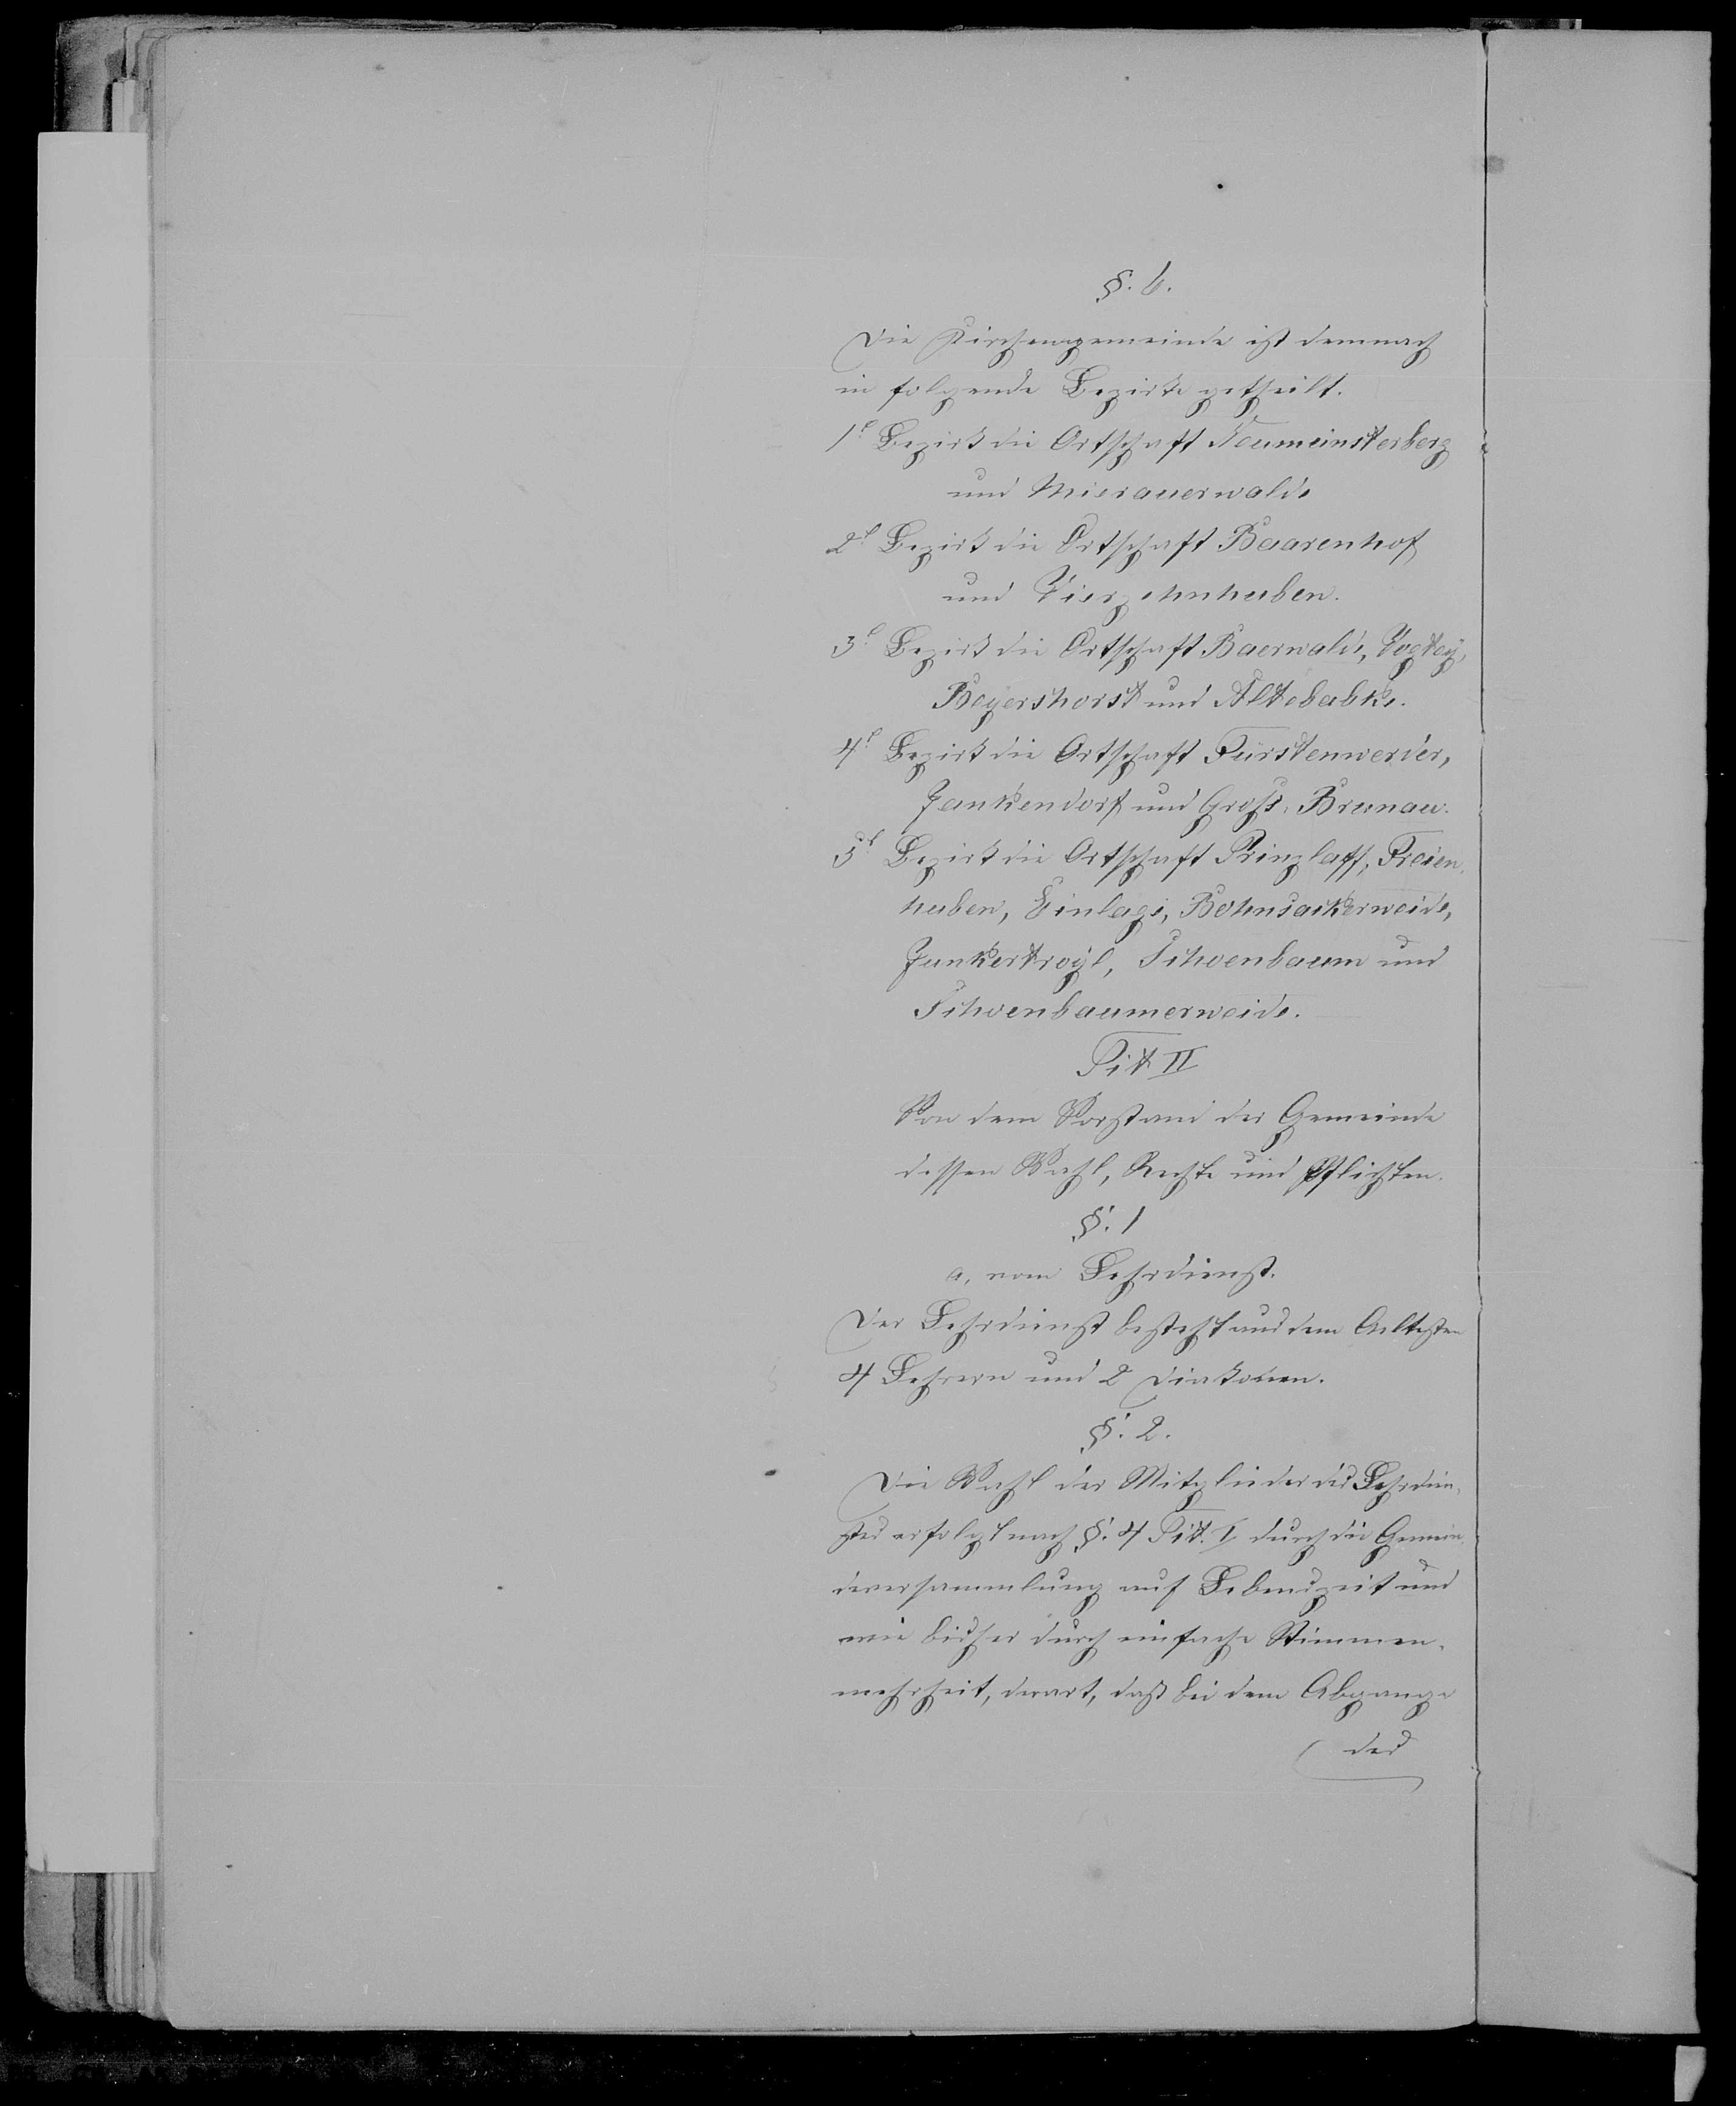 §. 6.
Die Kirchengemeinde ist demnach
in folgende Bezirke getheilt.
1t. Bezirk die Ortschaft Neumeinsterberg
und Mierauerwalde
2t. Bezirk die Ortschaft Baarenhof
und Vierzehnhuben.
3t. Bezirk die Ortschaft Baerwalde, Vogtey,
Beyershorst und Altebabke.
4t. Bezirk die Ortschaft Fürstenwerder,
Jankendorf und Gross. Brunau.
5t. Bezirk die Ortschaft Prinzlaff, Freien-
huben, Einlage, Bohnsackerweide,
Junkertroyl, Schoenbaum und
Schoenbaumerweide.
Tit II
Von dem Vorstand der Gemeinde
dessen Wahl, Rechte und Pflichten.
§. 1
a, vom Lehrdienst.
Der Lehrdienst besteht aus dem Aeltesten
4 Lehrern und 2 Diakonen.
§. 2.
Die Wahl der Mitglieder des Lehrdien-
stes erfolgt nach §. 4 Tit. I durch die Gemein-
deversammlung auf Lebenszeit und
wie bisher durch einfache Stimmen-
mehrheit, derart, daß bei dem Abgange
des